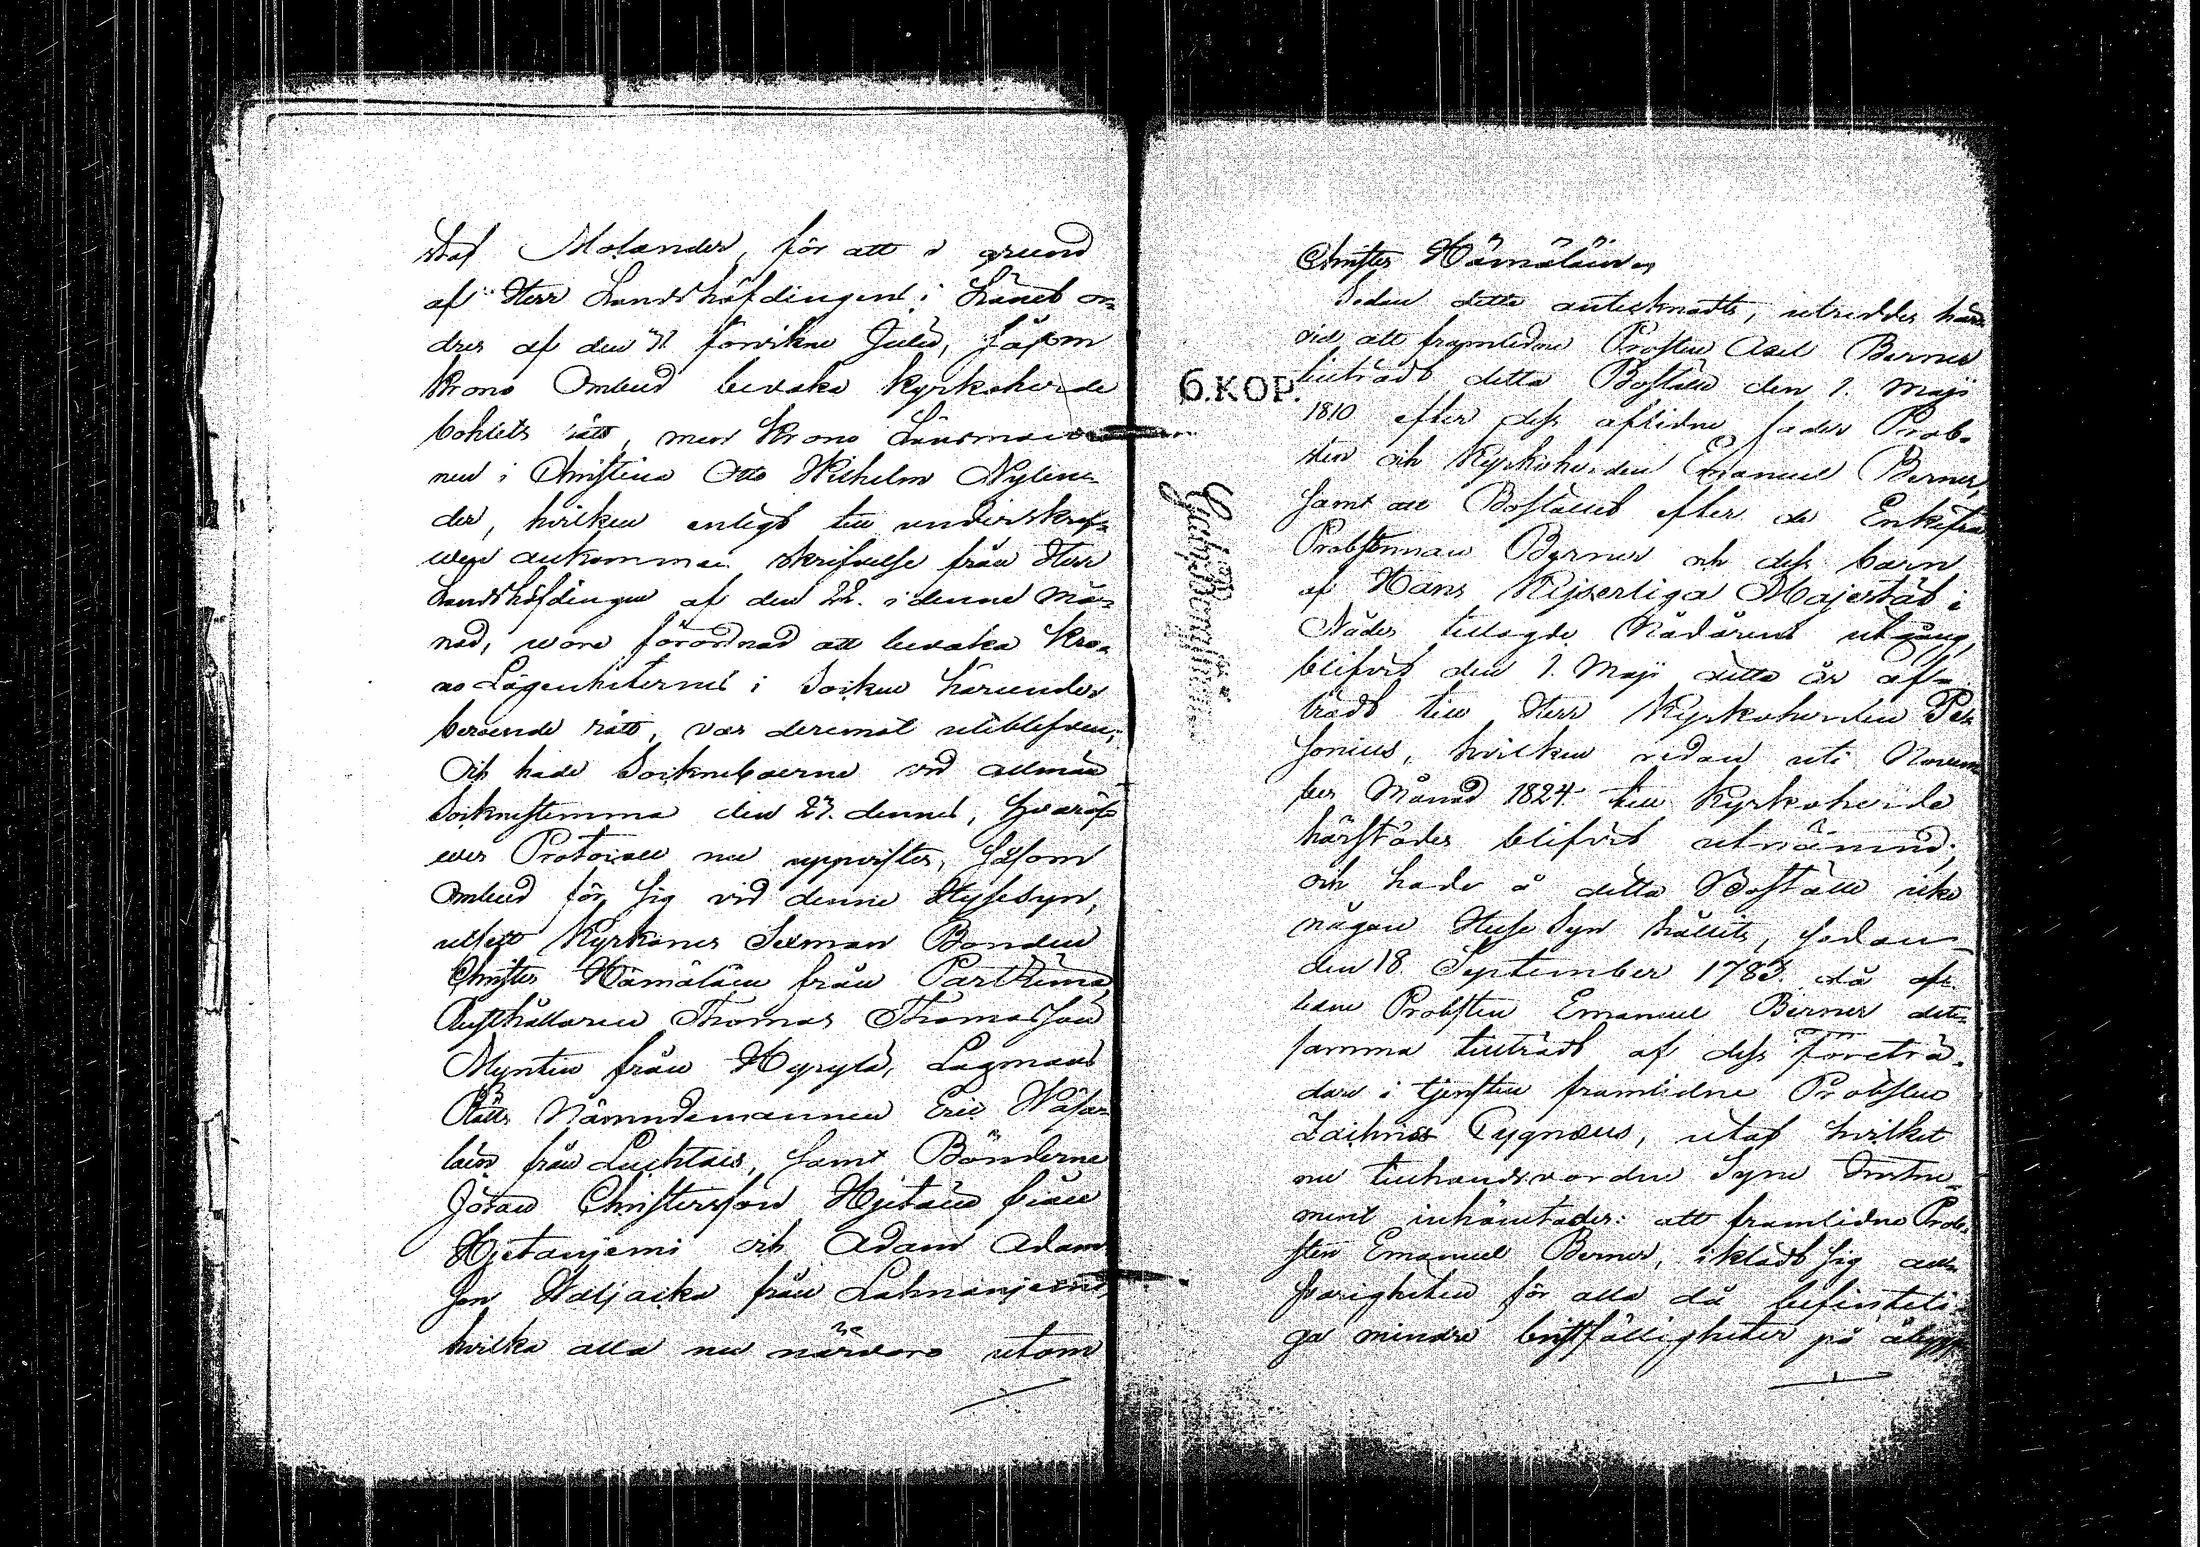 staf Molander, för att i grund
af Herr Landshöfdingens i Länet or-
dres af den 31 förvikne Julii, såsom
Krono Ombud bevaka Kyrkoherde
bohlets rätt, men Krono Länsman-
nen i Christina Otto Wilhelm Nylan-
der, hvilken enligt till underskref-
wen ankommen skrifvelse från Herr
Landshöfdingen af den 22. i denne Må-
nad, wore förordnad att bevaka Kro-
no Lägenheternes i Socken härunder
beroende rätt, var deremot utiblefven;
Och hade Sockneboerne vid allmän
Socknestemma den 23. dennes, hvaröf-
ver Protocoll nu uppvistes, såsom
Ombud för sig vid denne Husesyn,
utsett Kyrkones Sexman Bonden
Christer Hämäläin från Partkima
Rusthållaren Thomas Thomasson
Myntin från Hyrylä, Lagmans
Rätts Nämndemannen Eric Häfar
lain från Luchtais, samt Bönderne
Jöran Christersson Hjetain från
Hjetanjemi och Adam Adam
son Waljacka från Lahnanjemi,
hvilka alla nu närvoro utom
Christer Hämäläinen
Sedan detta antecknadts, utreddes här-
vid att framledne Prosten Axel Berner
tillträdt detta Boställe den 1. Maji
6.KOP.
1810 efter dess aflidne fader Prob-
sten och Kyrkoherden Emanuel Berner,
samt att Bostället efter de Enkefru
Probstinnan Berner och dess barn
af Hans Kejserliga Majestät i
Nåder tillagde Nådårens utgång,
blifvit den 1. Maji detta år af-
trädt till Herr Kyrkoherden Per
sonius, hvilken redan uti Novem
ber Månad 1824 till Kyrkoherde
härstädes blifvit utnämnd;
och hade å detta Boställe icke
någon Huse Syn hållits, sedan
den 18 September 1783. då af-
ledne Probsten Emanuel Berner det-
samma tillträdt af dess företrä-
dare i tjensten framledne Probsten
Zachris Cygnæus, utaf hvilket
nu tillhandavordne Syne Instru-
ment inhämtades: att framledne Prob-
sten Emanuel Berner, iklädt sig an-
svarigheten för alla då befinteli-
ga mindre bristfälligheter på åbygg